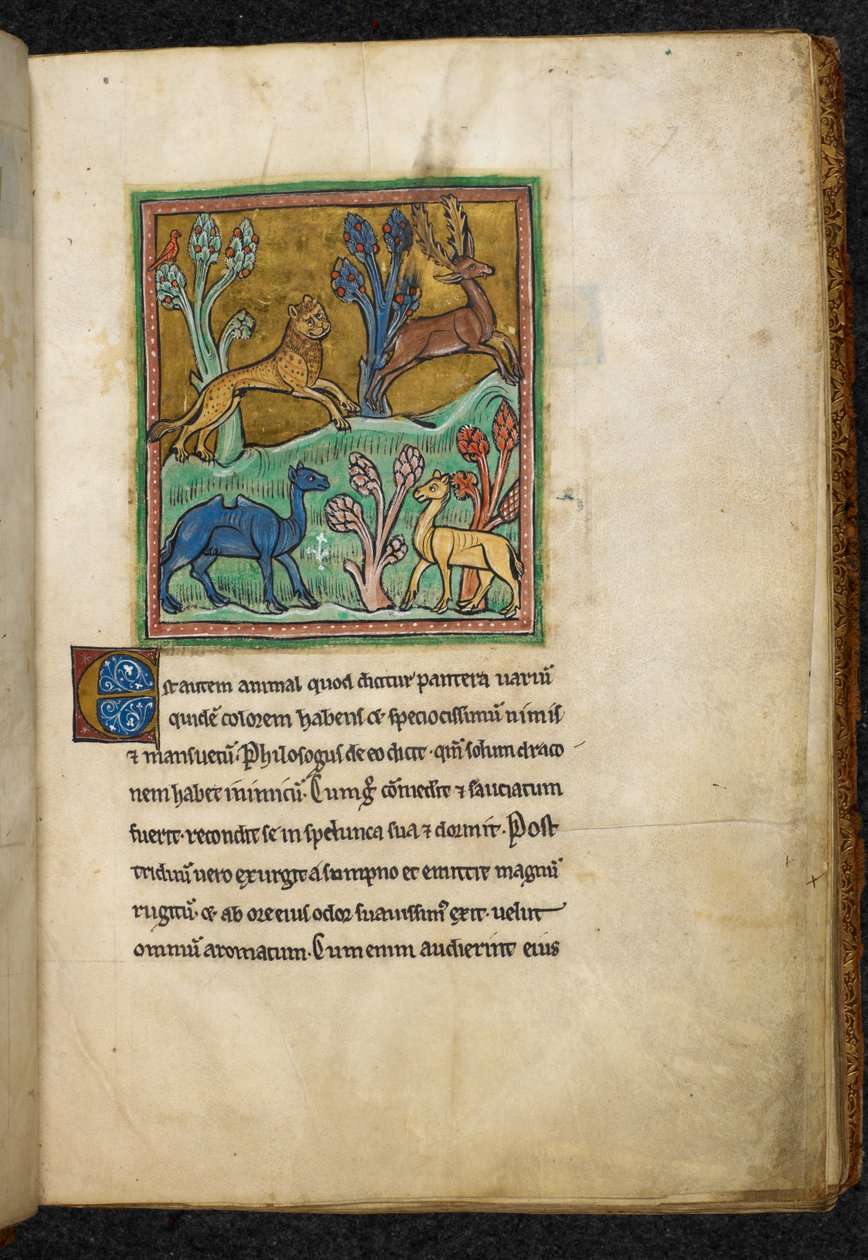 Est autem animal quod dicitur pantera variū
quidē colorem habens & speciocissimū nimis
⁊ mansuetū. Philosogus de eo dicit. qm̄ solum draco
nem habet inimicū. Cum gͦ cōmedit ⁊ sauciatum
fuerit. recondit se in spelunca sua ⁊ dormit. Post
triduū uero exurgit a sumpno et emittit magnū
rugitū. & ab ore eius odor suauissim᷒ exit. uelut
omniū aromatum. Cum enim audierint eius